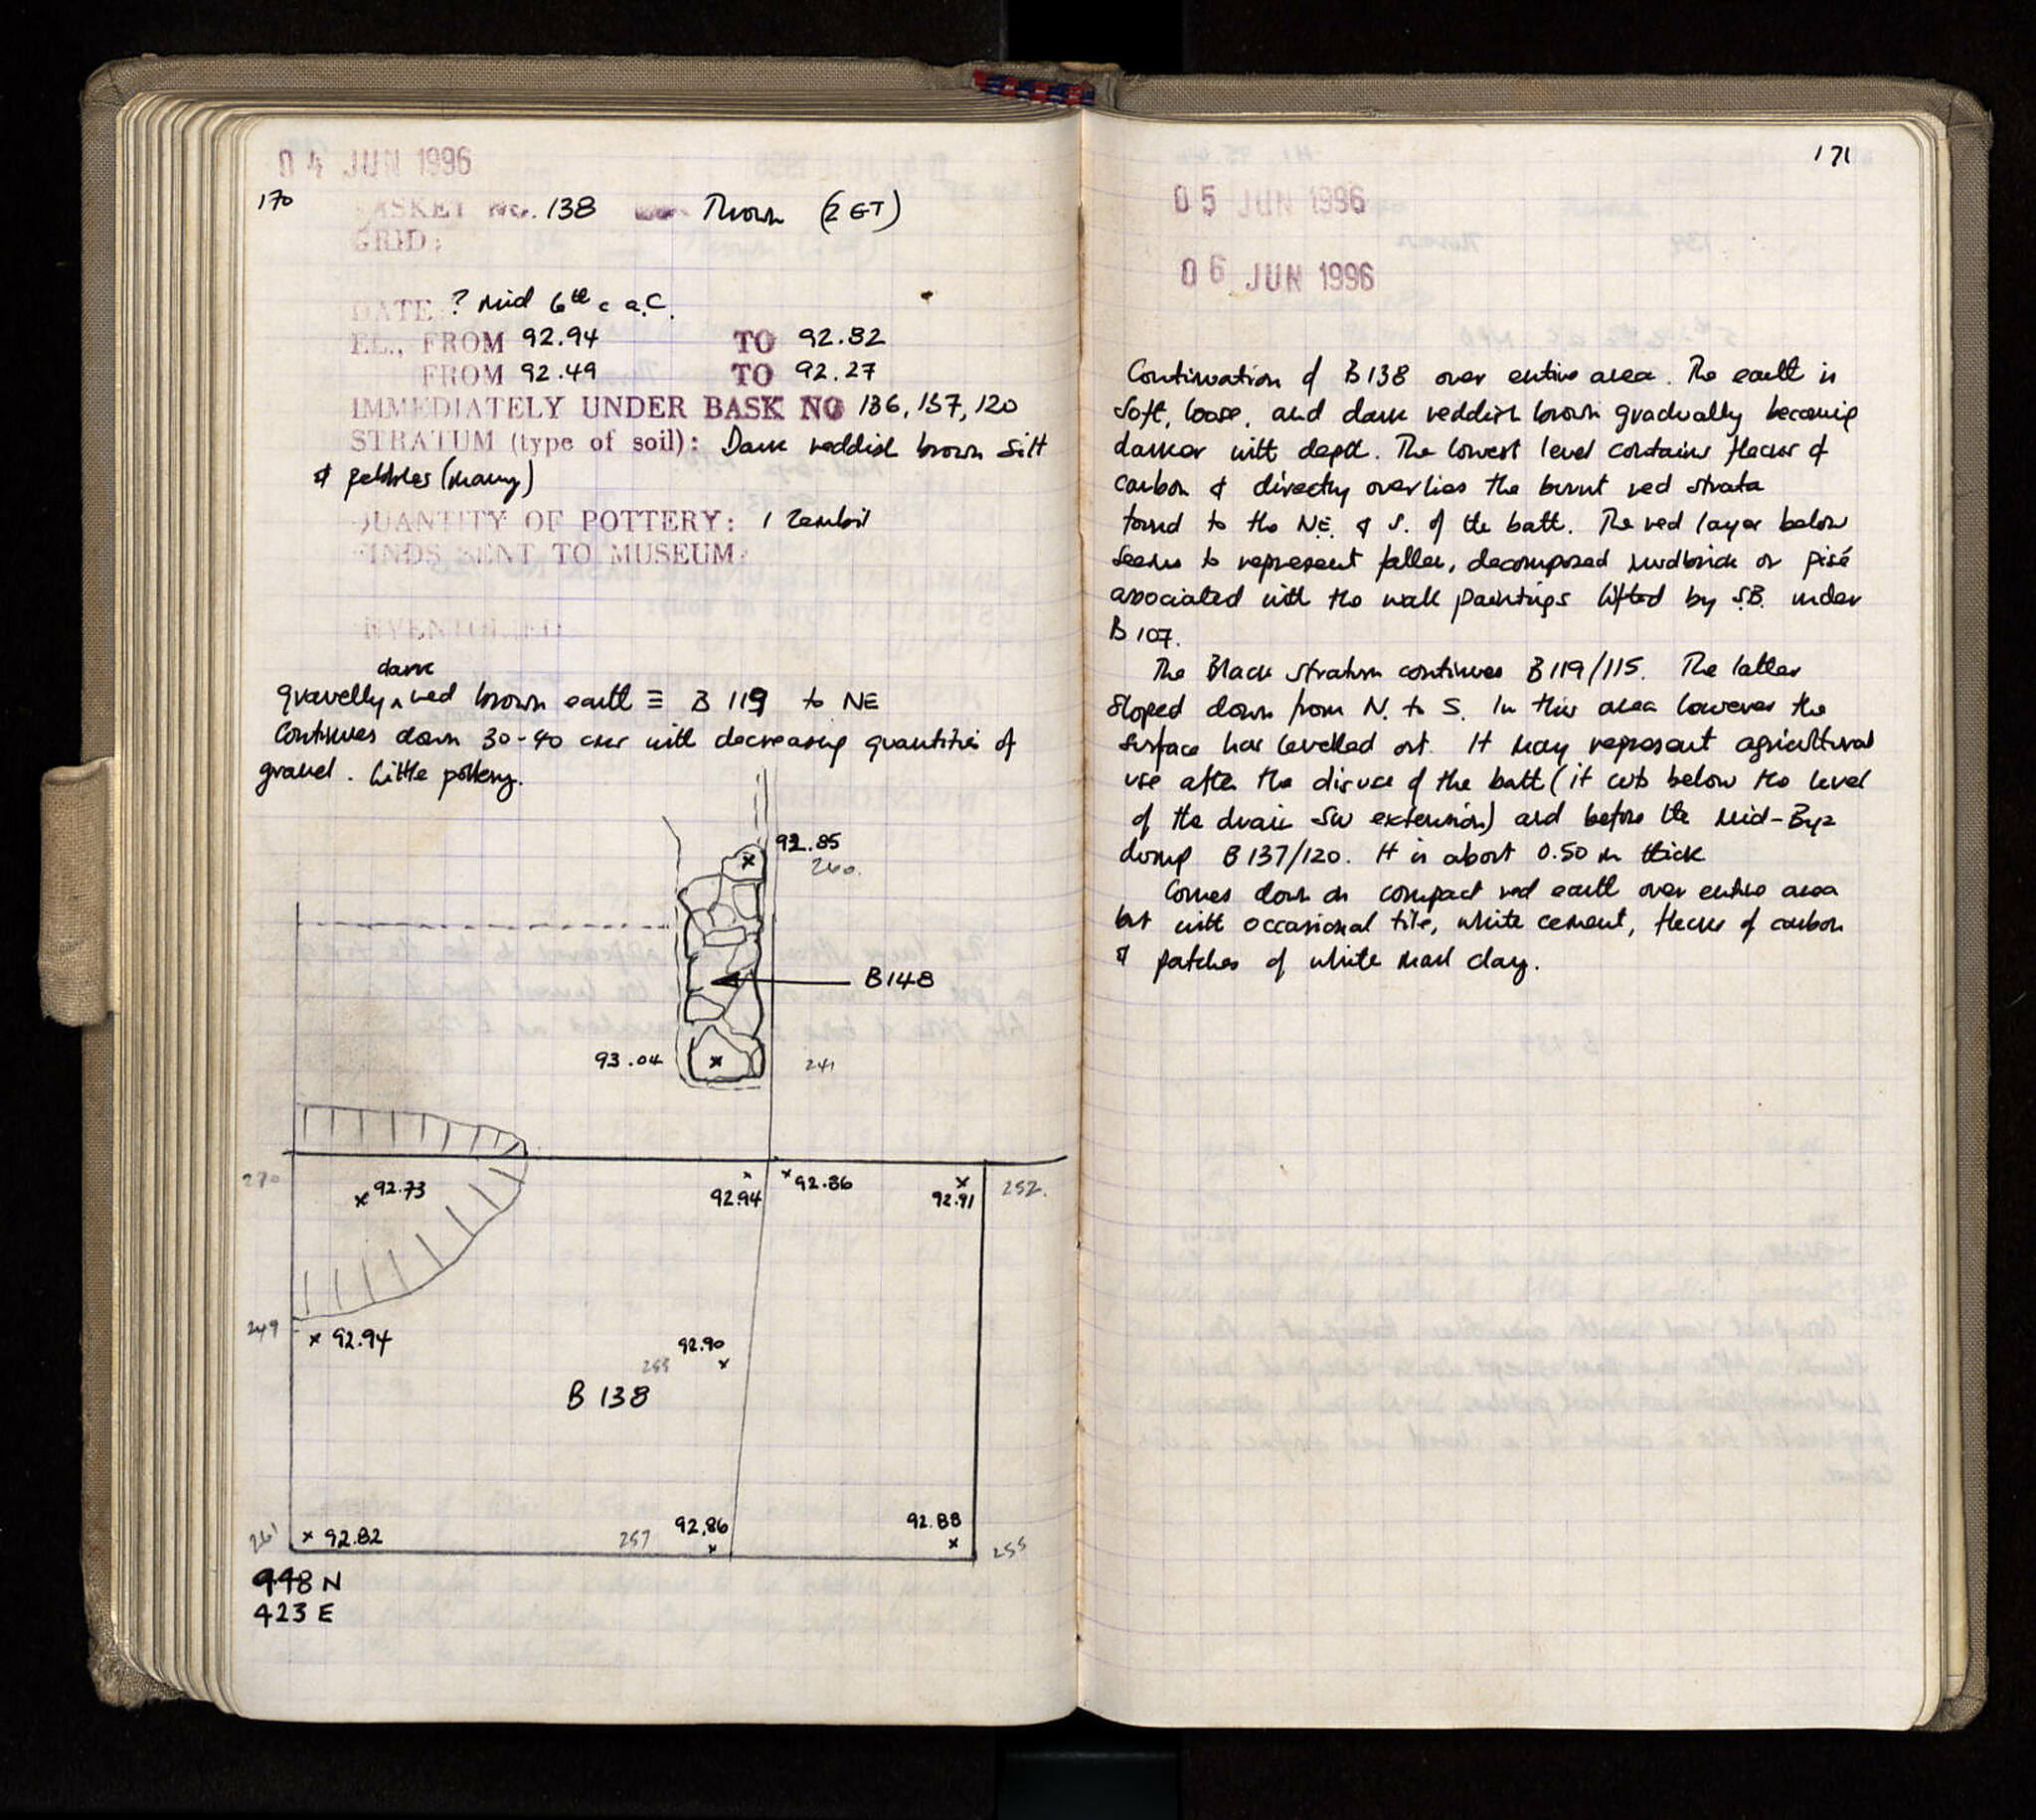 04 JUN 1996
170
BASKET NO. 138 Thrown (2 GT)
GRID:
DATE ? Mid 6th c a.C.
EL., FROM 92.94 TO 92.82
FROM 92.49 TO 92.27
IMMEDIATELY UNDER BASK NO 136, 137, 120
STRATUM (type of soil): Dark reddish brown silt
& pebbles (many)
QUANTITY OF POTTERY: 1 zembil
FINDS SENT TO MUSEUM:
INVENTORIED
dark
gravelly ^ red brown earth ≡ B 119 to NE
Continues down 30-40 cms with decreasing quantities of
gravel. Little pottery.
92.85
240.
B148
93.04
241
270
92.73
92.94
92.86
92.91
252.
249
92.94
92.90
255
B 138
261
92.82
257
92.86
92.88
255
998 N
423 E
171
05 JUN 1996
06 JUN 1996
Continuation of B138 over entire area. The earth is
soft, loose, and dark reddish brown gradually becoming
darker with depth. The lowest level contains flecks of
carbon & directly overlies the burnt red strata
found to the NE. & S. of the bath. The red layer below
seems to represent fallen, decomposed mudbrick or pisé
associated with the wall paintings lifted by S.B. under
B 107.
The Black stratum continues B119/115. The latter
sloped down from N. to S. In this area however the
surface has levelled out. It may represent agricultural
use after the disuse of the bath (it cuts below the level
of the drain SW extension) and before the Mid-Byz
dump B137/120. It is about 0.50 m thick
Comes down on compact red earth over entire area
but with occasional tile, white cement, flecks of carbon
& patches of white marl clay.